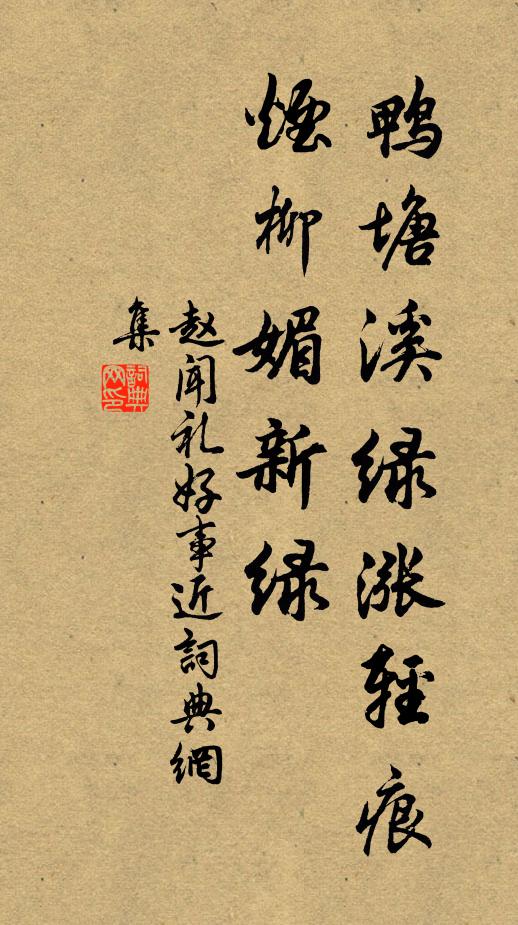 鸭塘溪绿涨轻痕
烟柳媚新绿
赵闻礼好事近詞典網
集
詞典
网印